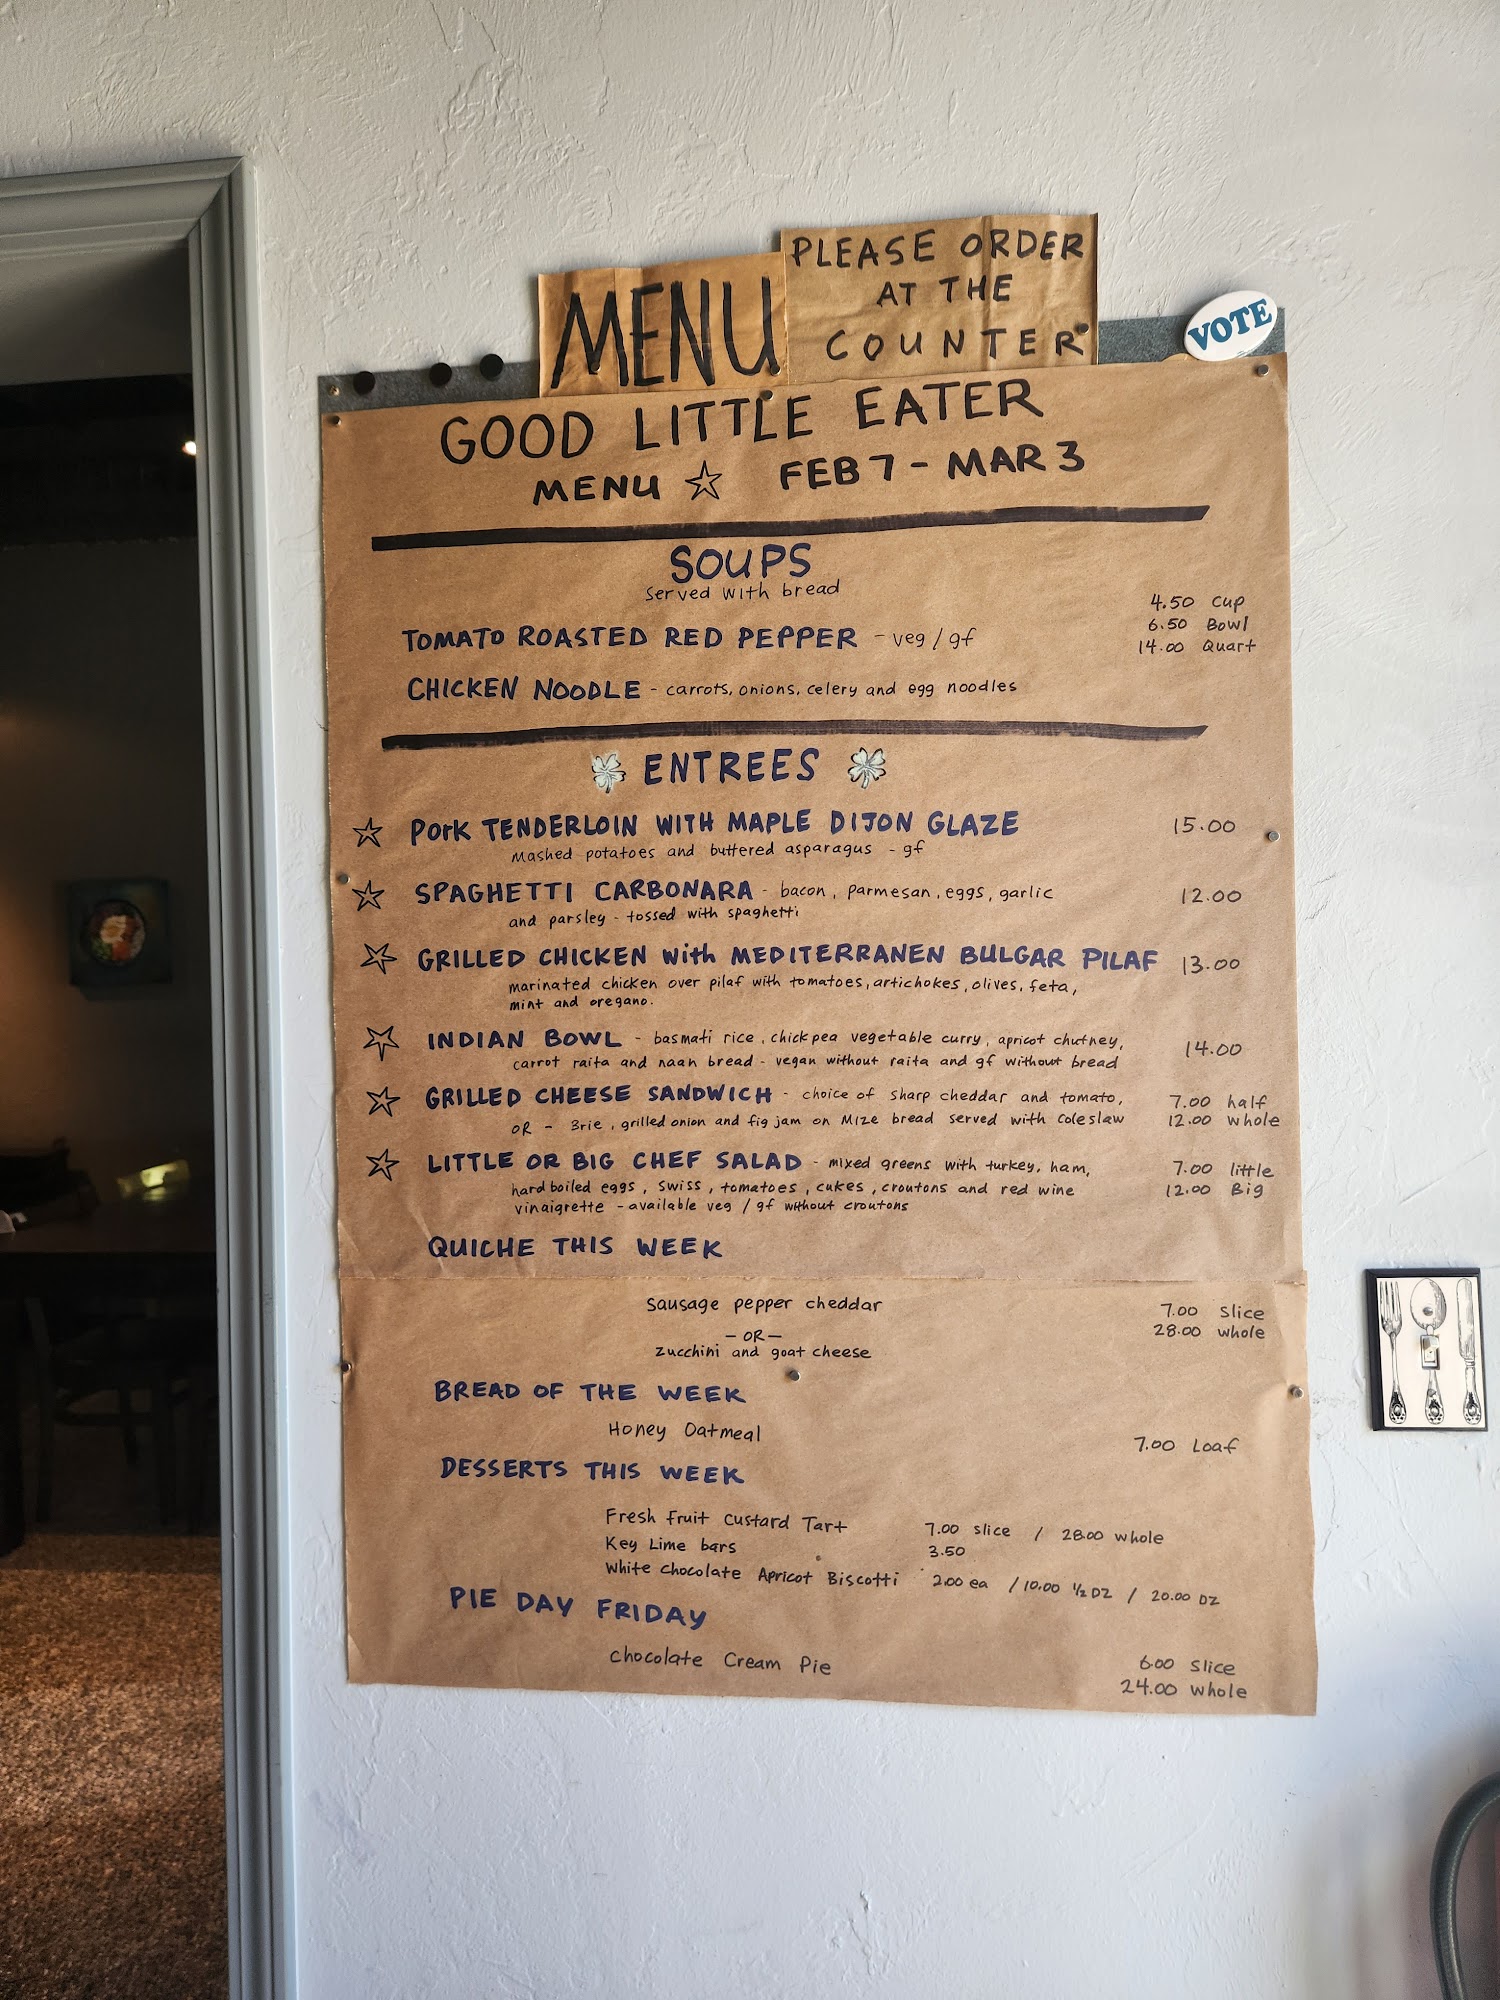 MENU
PLEASE ORDER
AT THE
COUNTER
VOTE
GOOD LITTLE EATER
MENU ☆ FEB 7 - MAR 3
SOUPS
served with bread
4.50 cup
6.50 Bowl
14.00 Quart
TOMATO ROASTED RED PEPPER - veg / gf
CHICKEN NOODLE - carrots, onions, celery and egg noodles
ENTREES
☆ Pork TENDERLOIN WITH MAPLE DIJON GLAZE 15.00
Mashed potatoes and buttered asparagus - gf
☆ SPAGHETTI CARBONARA - bacon, parmesan, eggs, garlic 12.00
and parsley - tossed with spaghetti
☆ GRILLED CHICKEN with MEDITERRANEN BULGAR PILAF 13.00
marinated chicken over pilaf with tomatoes, artichokes, olives, feta,
mint and oregano.
☆ INDIAN BOWL - basmati rice, chickpea vegetable curry, apricot chutney, 14.00
carrot raita and naan bread - vegan without raita and gf without bread
☆ GRILLED CHEESE SANDWICH - choice of sharp cheddar and tomato, 7.00 half
OR - Brie, grilled onion and fig jam on Mize bread served with Coleslaw 12.00 whole
☆ LITTLE OR BIG CHEF SALAD - mixed greens with turkey, ham, 7.00 little
hard boiled eggs, swiss, tomatoes, cukes, croutons and red wine 12.00 Big
vinaigrette - available veg / gf without croutons
QUICHE THIS WEEK
Sausage pepper cheddar 7.00 slice
- OR - 28.00 whole
zucchini and goat cheese
BREAD OF THE WEEK
Honey Oatmeal 7.00 Loaf
DESSERTS THIS WEEK
Fresh fruit custard Tart 7.00 slice / 28.00 whole
Key Lime bars 3.50
White chocolate Apricot Biscotti 2.00 ea / 10.00 ½ DZ / 20.00 DZ
PIE DAY FRIDAY
Chocolate Cream Pie 6.00 slice
24.00 whole